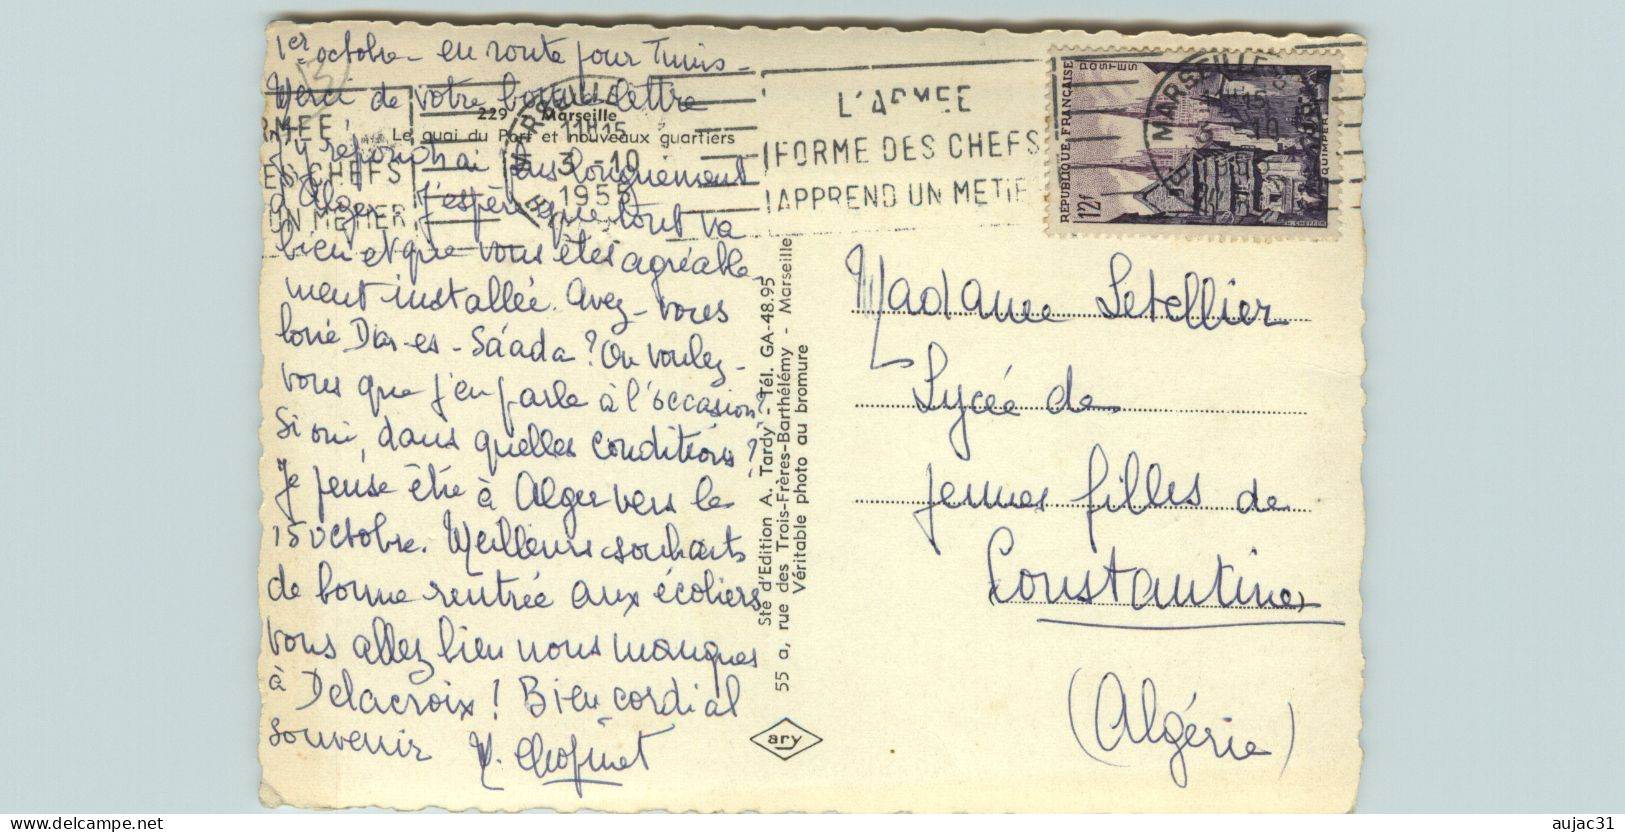 1er octobre - en route pour Tunis -
Merci de votre bonne lettre
j'y répondrai plus longuement
d'Alger. J'espère que tout va
bien et que vous êtes agréable-
ment installée. Avez-vous
loué Dar-es-Sáada? Ou voulez-
vous que j'en parle à l'occasion?
Si oui, dans quelles conditions?
Je pense être à Alger vers le
15 octobre. Meilleurs souhaits
de bonne rentrée aux écoliers
vous allez bien nous manquer
à Delacroix! Bien cordial
souvenir
229 Marseille
Le quai du Port et nouveaux quartiers
MARSEILLE
11H15
3 -10
1955
ARMEE
ES CHEFS
UN METIER
L'ARMEE
FORME DES CHEFS
APPREND UN METIE
MARSEILLE
RÉPUBLIQUE FRANÇAISE
POSTES
12f
QUIMPER
Sté d'Edition A. Tardy - Tél. GA-48.95
55 a, rue des Trois-Frères-Barthélémy - Marseille
Véritable photo au bromure
ary
Madame Letellier
Lycée de
jeunes filles de
Constantine
(Algérie)
www.delcampe.net
aujac31